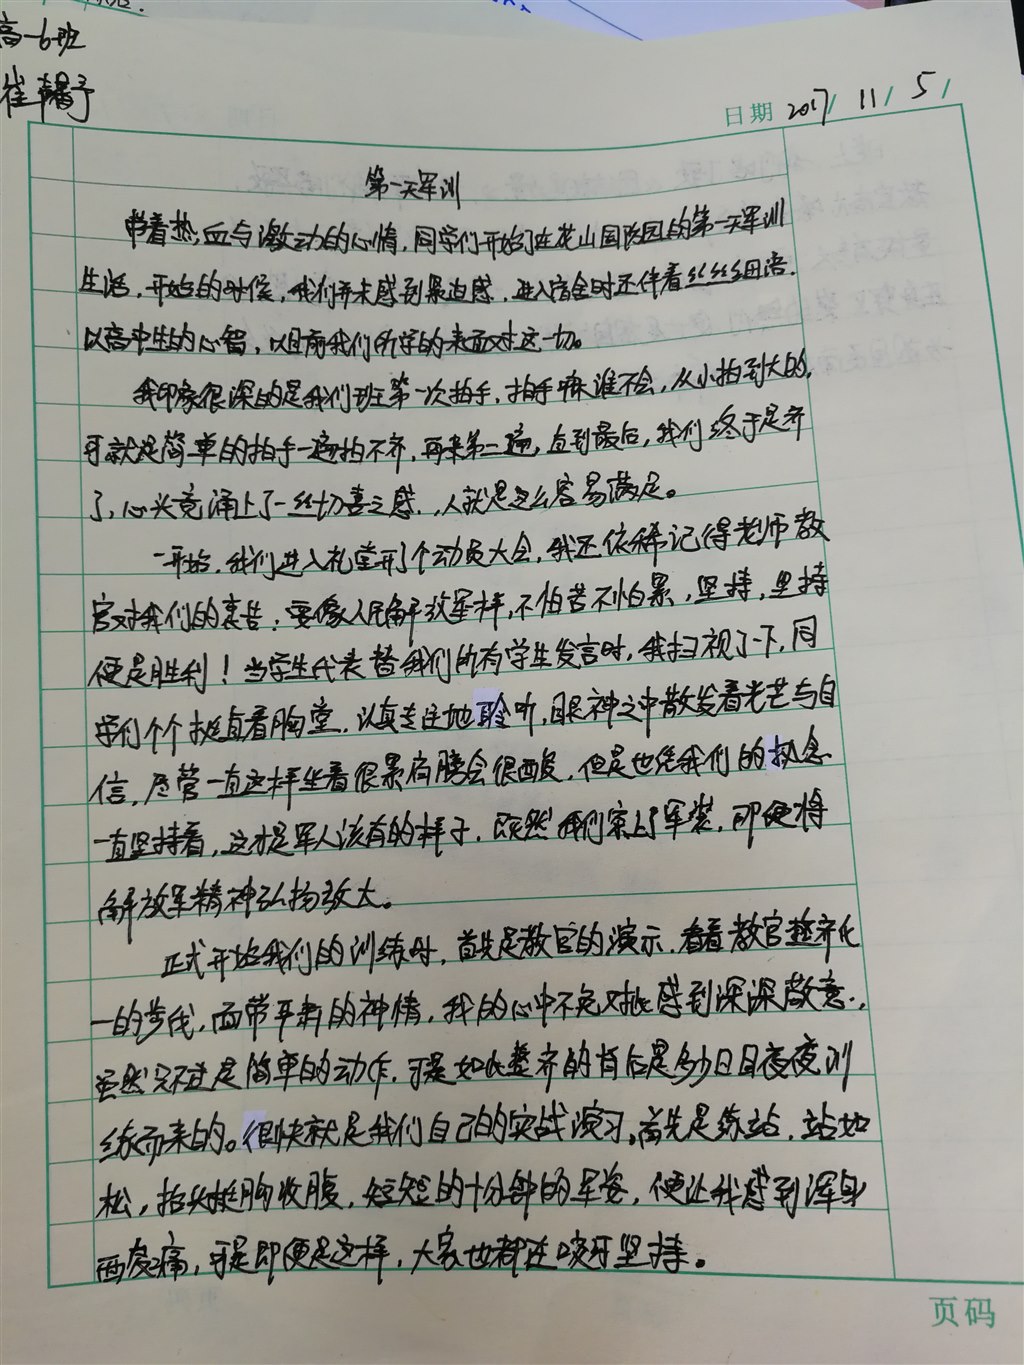 高一6班
崔馨予
日期 2017/ 11/ 5/
第一天军训
带着热血与激动的心情,同学们开始了在花山国防园的第一天军训
生活,开始的时候,我们并未感到紧迫感,进入宿舍时还伴着丝丝细语,
以高中生的心智,以目前我们所学的来面对这一切。
我印象很深的是我们班第一次拍手,拍手嘛谁不会,从小拍到大的,
可就是简单的拍手一遍拍不齐,再来第二遍,直到最后,我们终于是齐
了,心头竟涌上了一丝切喜之感,人就是这么容易满足。
一开始,我们进入礼堂开了个动员大会,我还依稀记得老师教
官对我们的衷告:要像人民解放军一样,不怕苦不怕累,坚持,坚持
便是胜利!当学生代表替我们所有学生发言时,我扫视了一下,同
学们个个挺直着胸堂,认真专注地聆听,眼神之中散发着光芒与自
信,尽管一直这样坐着很累肩膀会很酸,但是也凭我们的执念
一直坚持着,这才是军人该有的样子,既然我们穿上了军装,即便将
解放军精神弘扬放大。
正式开始我们的训练时,首先是教官的演示,看着教官整齐化
一的步伐,面带平肃的神情,我的心中不免对此感到深深敬意,
虽然只不过是简单的动作,可是如此整齐的背后是多少日日夜夜训
练而来的。很快就是我们自己的实战演习,首先是练站,站如
松,抬头挺胸收腹,短短的十分钟的军姿,便让我感到浑身
酸痛,可是即便是这样,大家也都在咬牙坚持。
页码